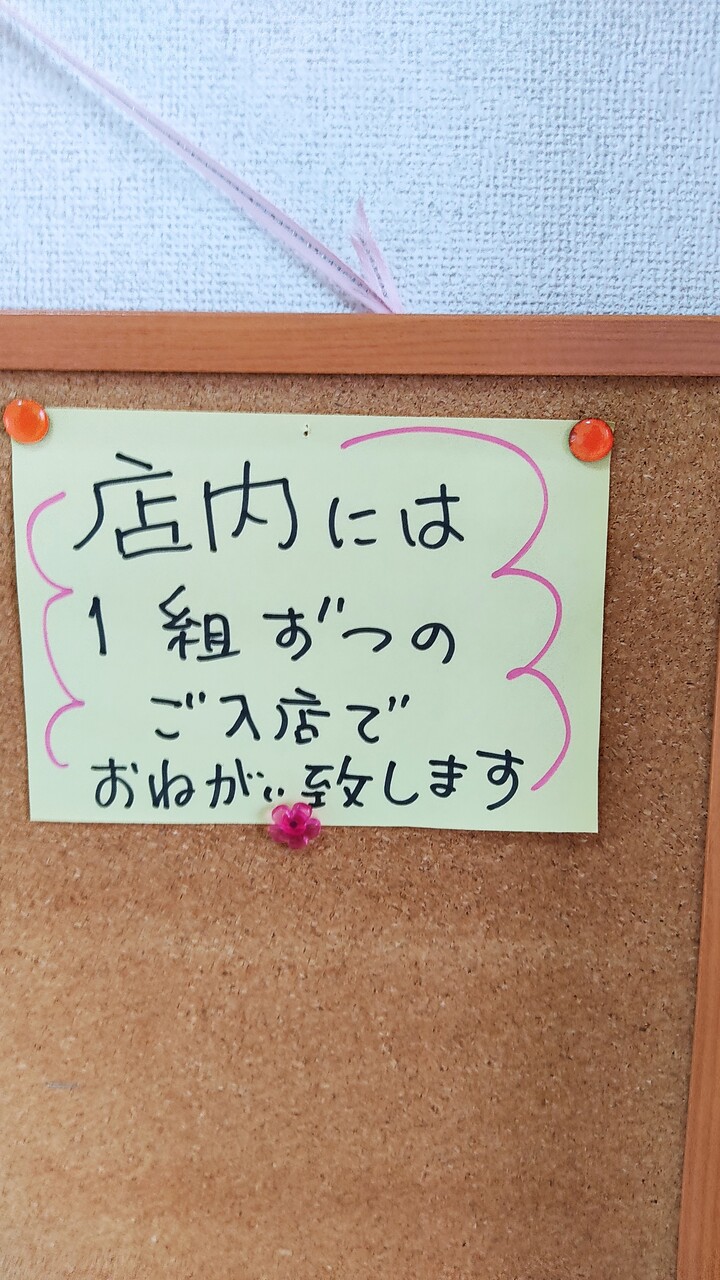 店内には
1組ずつの
ご入店で
おねがい致します